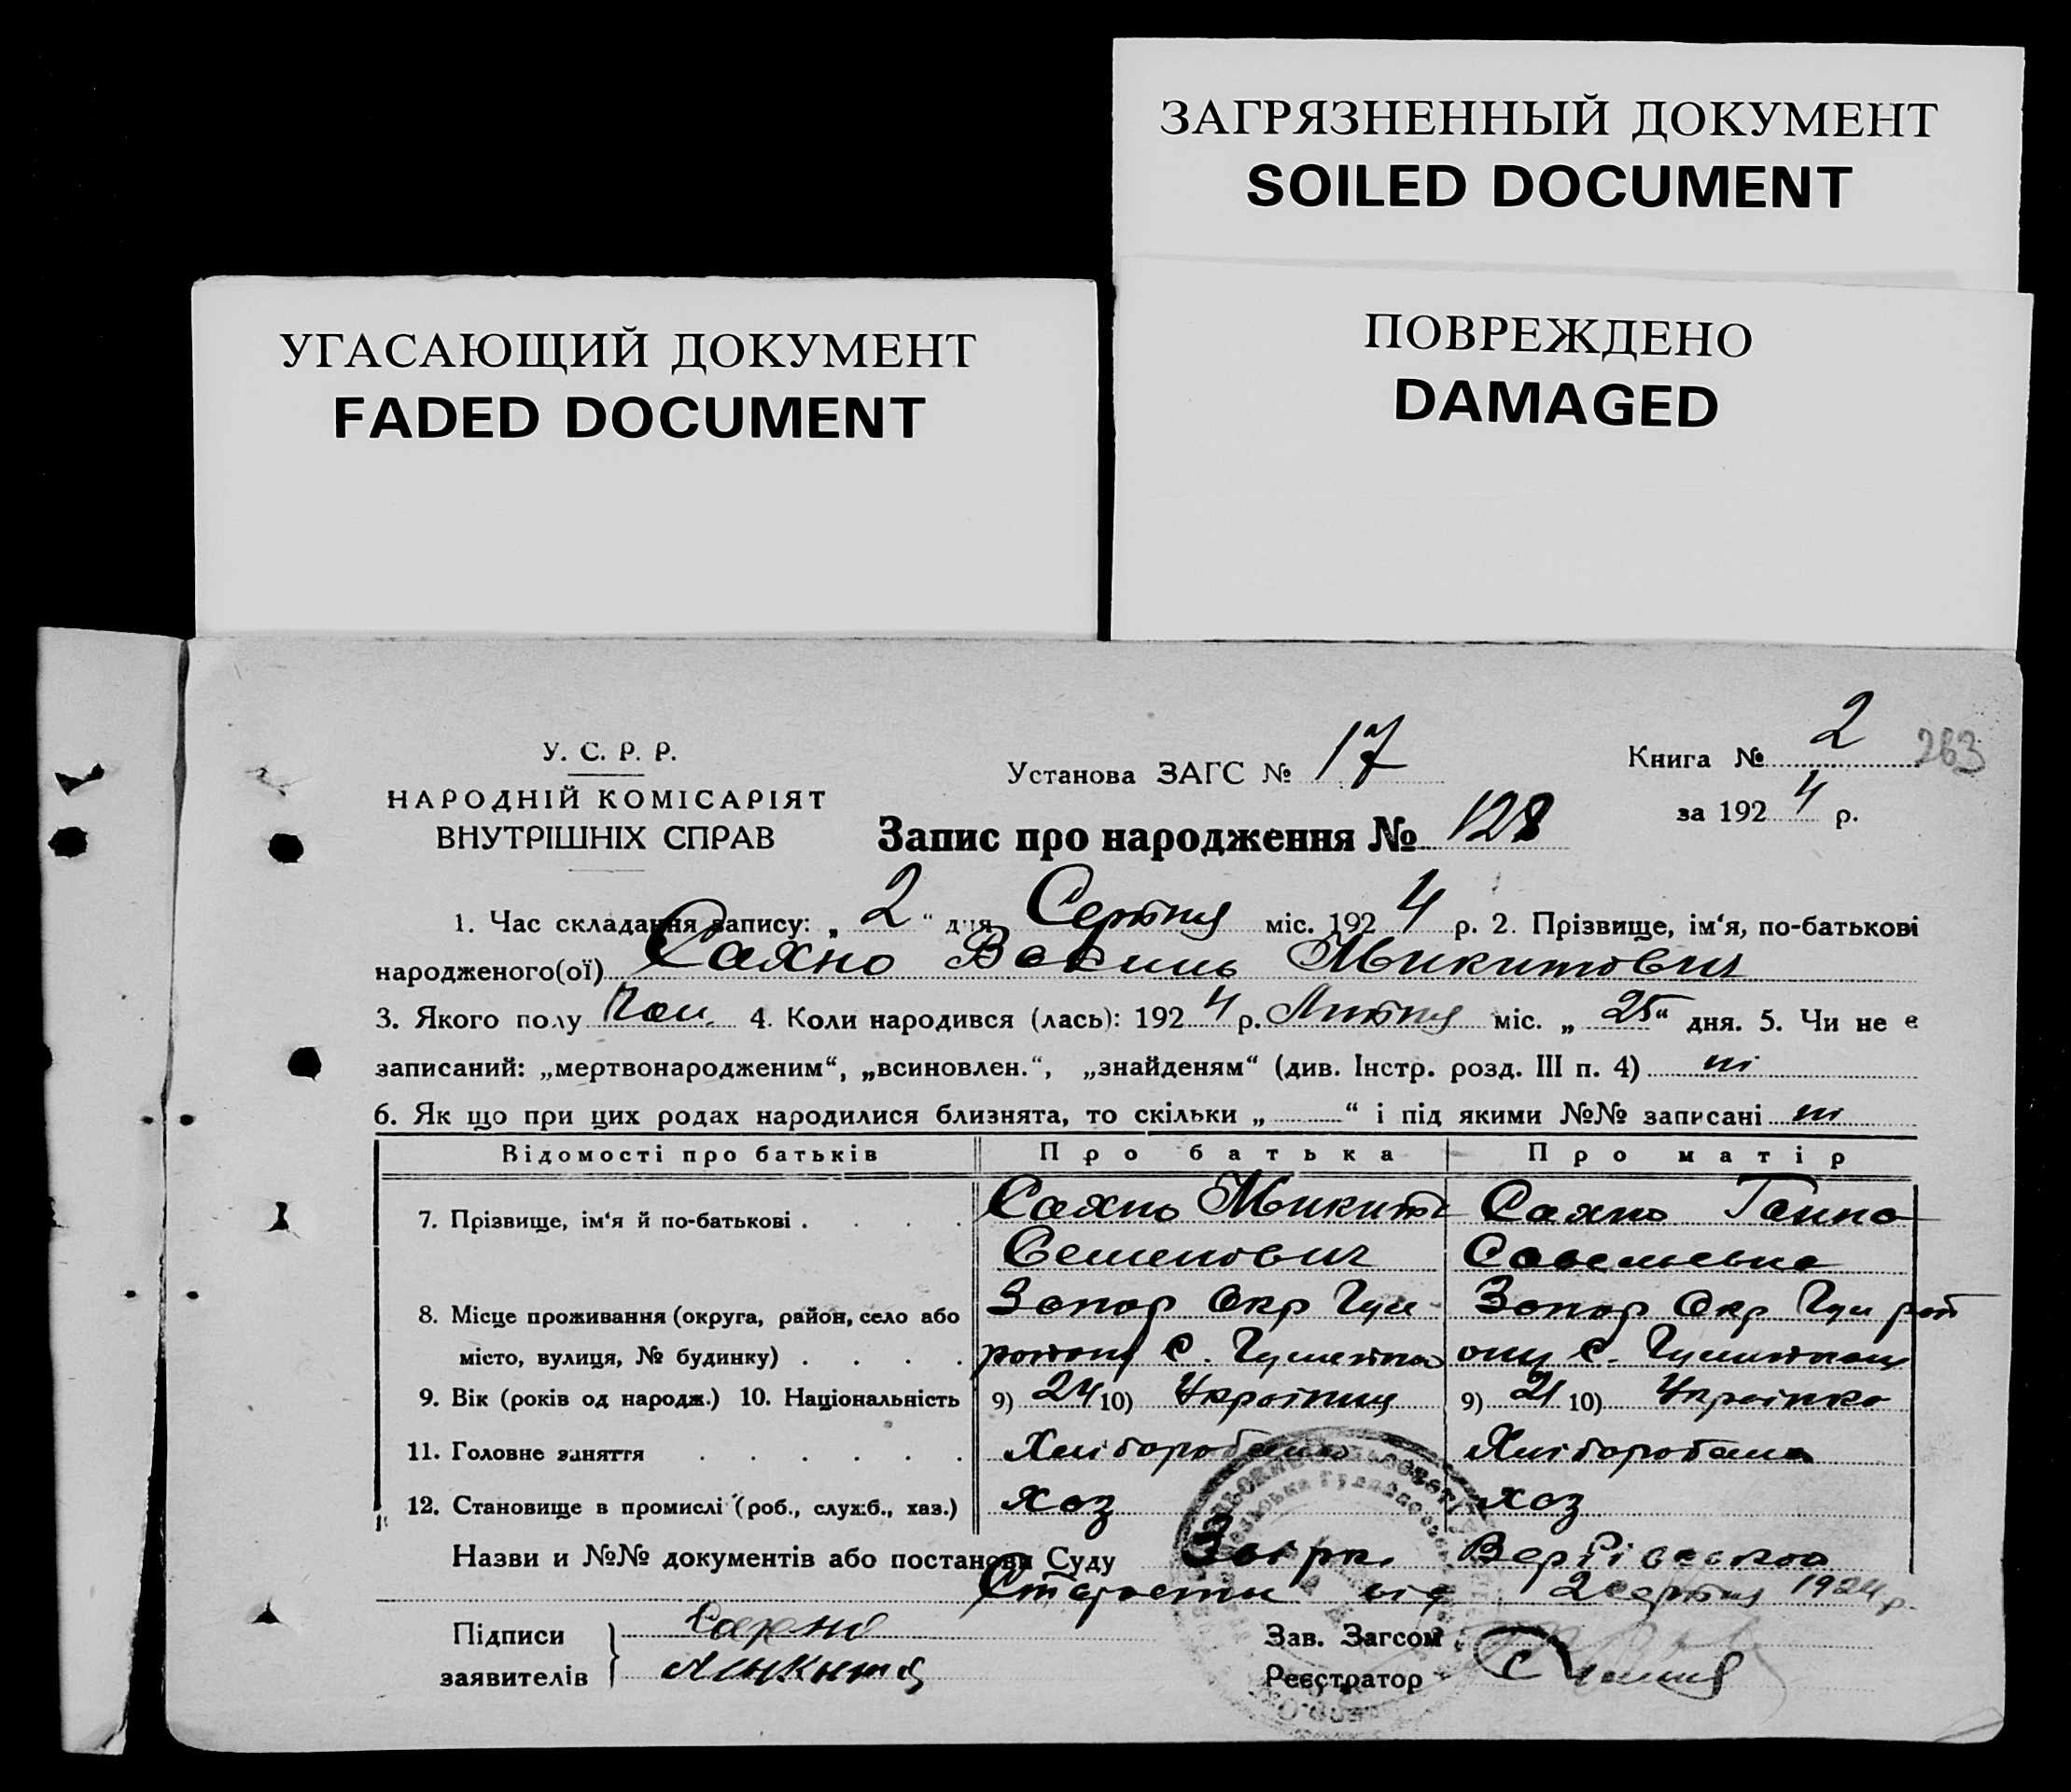 ЗАГРЯЗНЕННЫЙ ДОКУМЕНТ
SOILED DOCUMENT
УГАСАЮЩИЙ ДОКУМЕНТ
FADED DOCUMENT
ПОВРЕЖДЕНО
DAMAGED
У. С. Р. Р.
НАРОДНІЙ КОМІСАРІЯТ
ВНУТРІШНІХ СПРАВ
Установа ЗАГС № 17
Запис про народження № 128
Книга № 2 263
за 1924 р.
1. Час складання запису: „2“ дня Серпня міс. 1924 р. 2. Прізвище, ім‘я, по-батькові
народженого(ої) Сахно Василь Микитович
3. Якого полу Чол. 4. Коли народився (лась): 1924 р. Липня міс. „25“ дня. 5. Чи не є
записаний: „мертвонародженим“, „всиновлен.“, „знайденям“ (див. Інстр. розд. III п. 4) ні
6. Як що при цих родах народилися близнята, то скільки „ “ і під якими №№ записані ні
Відомості про батьків Про батька Про матір
7. Прізвище, ім‘я й по-батькові . . . . Сахно Микита Сахно Ганна
Семенович Савельевна
8. Місце проживання (округа, район, село або Запор Окр Гул Запор Окр Гул рай
місто, вулиця, № будинку) . . . . района С. ону С.
9. Вік (років од народж.) 10. Національність 9) 24 10) Україниц 9) 21 10) Українка
11. Головне заняття . . . . . . Хліборобство Хліборобства
12. Становище в промислі (роб., служб., хаз.) хаз хаз
Назви и №№ документів або постанови Суду
від 2 серпня 1924 р.
Підписи Сахно
заявителів Микита
Зав. Загсом
Реєстратор